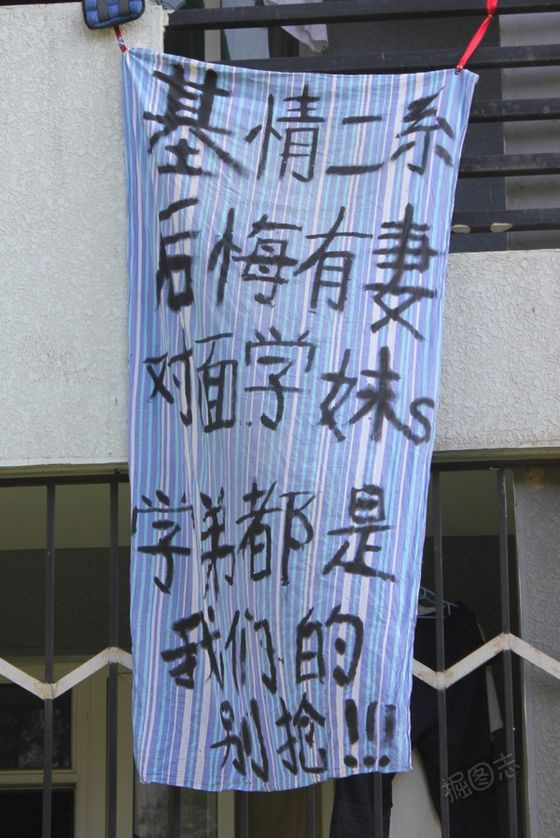 基情二系
后悔有妻
对面学妹s
学弟都是
我们的
别抢!!!
掘图志